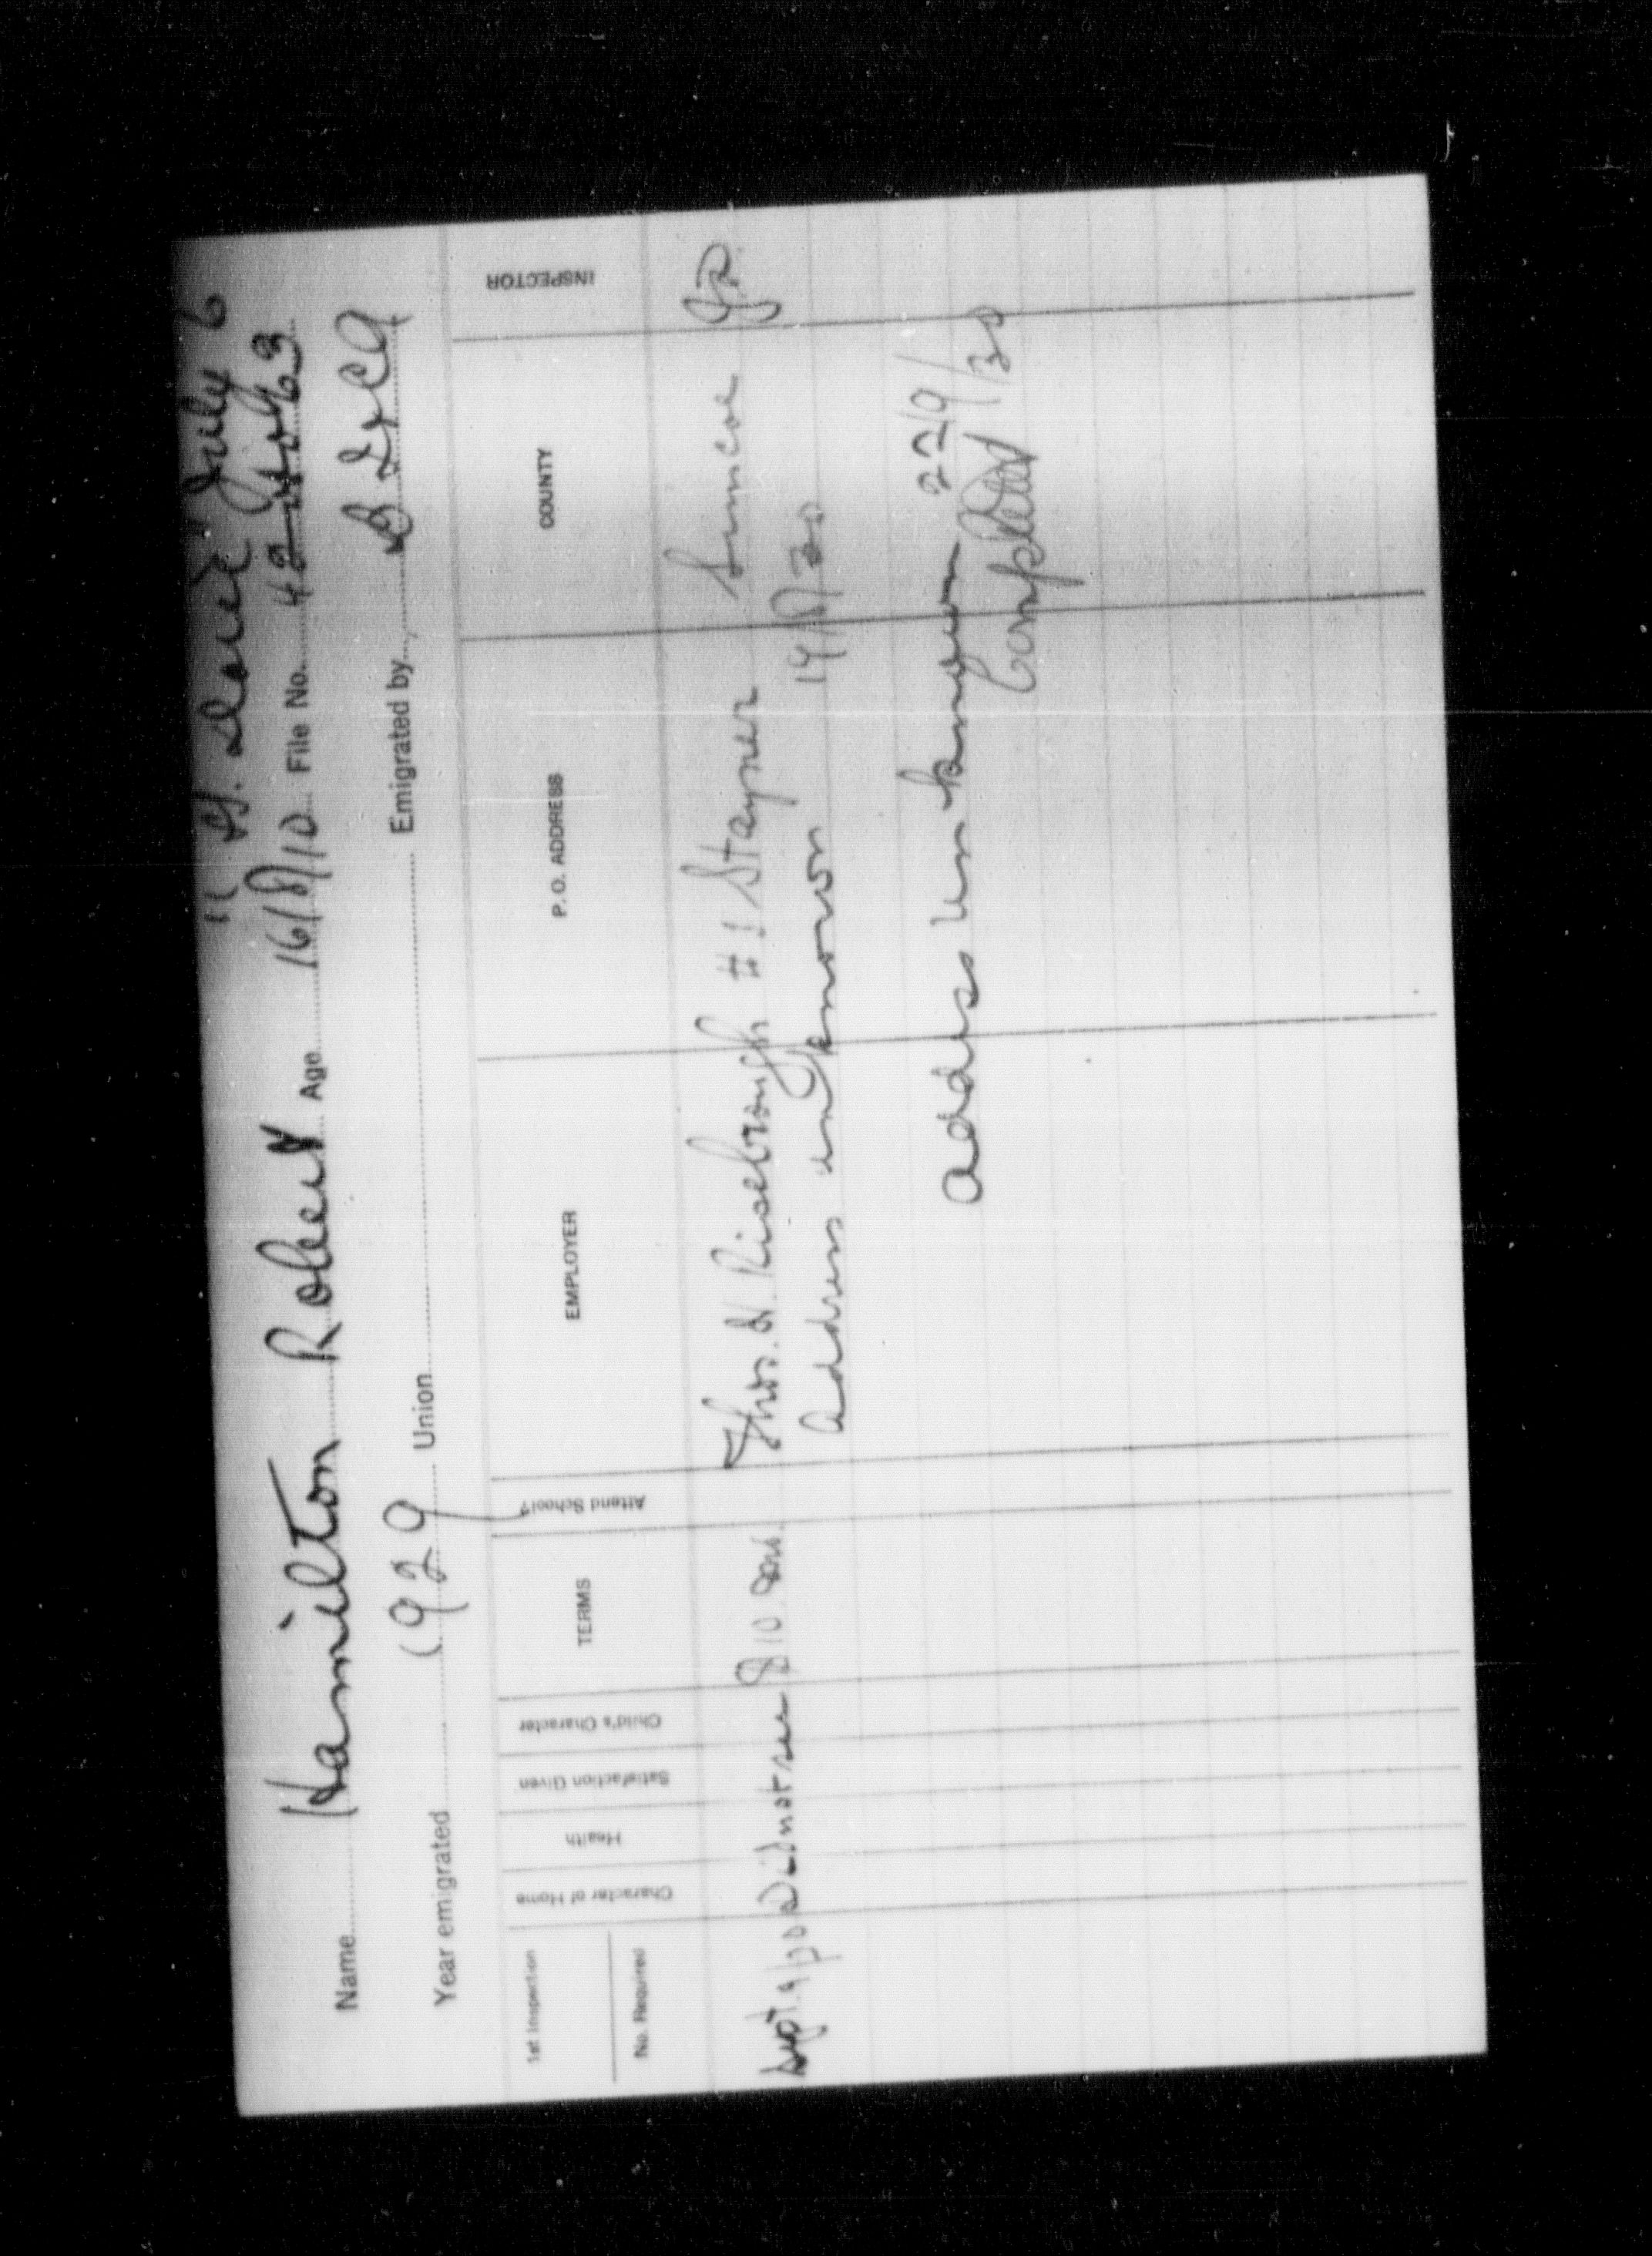 " St. Louis July 6
Name Hamilton Robert Age 16/8/10 File No.
Year emigrated 1929 Union Emigrated by
1st Inspection
No. Required
Character of Home
Health
Satisfaction Given
Child's Character
TERMS
Attend School?
EMPLOYER
P. O. ADDRESS
COUNTY
INSPECTOR
Sept 9/30 Did not see $10. Thos. H. Risebrough #1 Stayner Simcoe
Address unknown 19/8/30
Address unknown 22/9/30
Completed